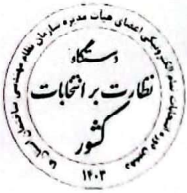 دهمین دوره انتخابات تمام الکترونیکی اعضای هیأت مدیره سازمان نظام مهندسی ساختمان استان ها
دستگاه
نظارت بر انتخابات
کشور
۱۴۰۳